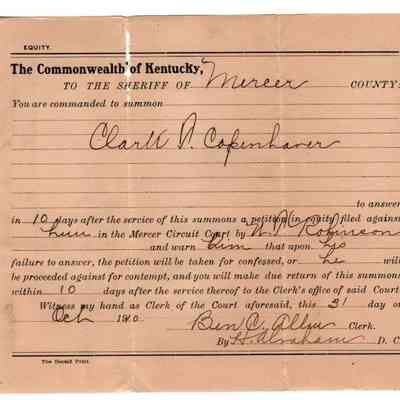 EQUITY.
The Commonwealth of Kentucky,
TO THE SHERIFF OF Mercer COUNTY:
You are commanded to summon
Clark P. Copenhaver
to answer
in 10 days after the service of this summons a petition in equity filed against
him in the Mercer Circuit Court by W. P. Robinson
and warn him that upon his
failure to answer, the petition will be taken for confessed, or he will
be proceeded against for contempt, and you will make due return of this summons
within 10 days after the service thereof to the Clerk's office of said Court
Witness my hand as Clerk of the Court aforesaid, this 31 day o
Oct 1910. Ben C. Allin Clerk.
By H. Abraham D. C
The Herald Print.